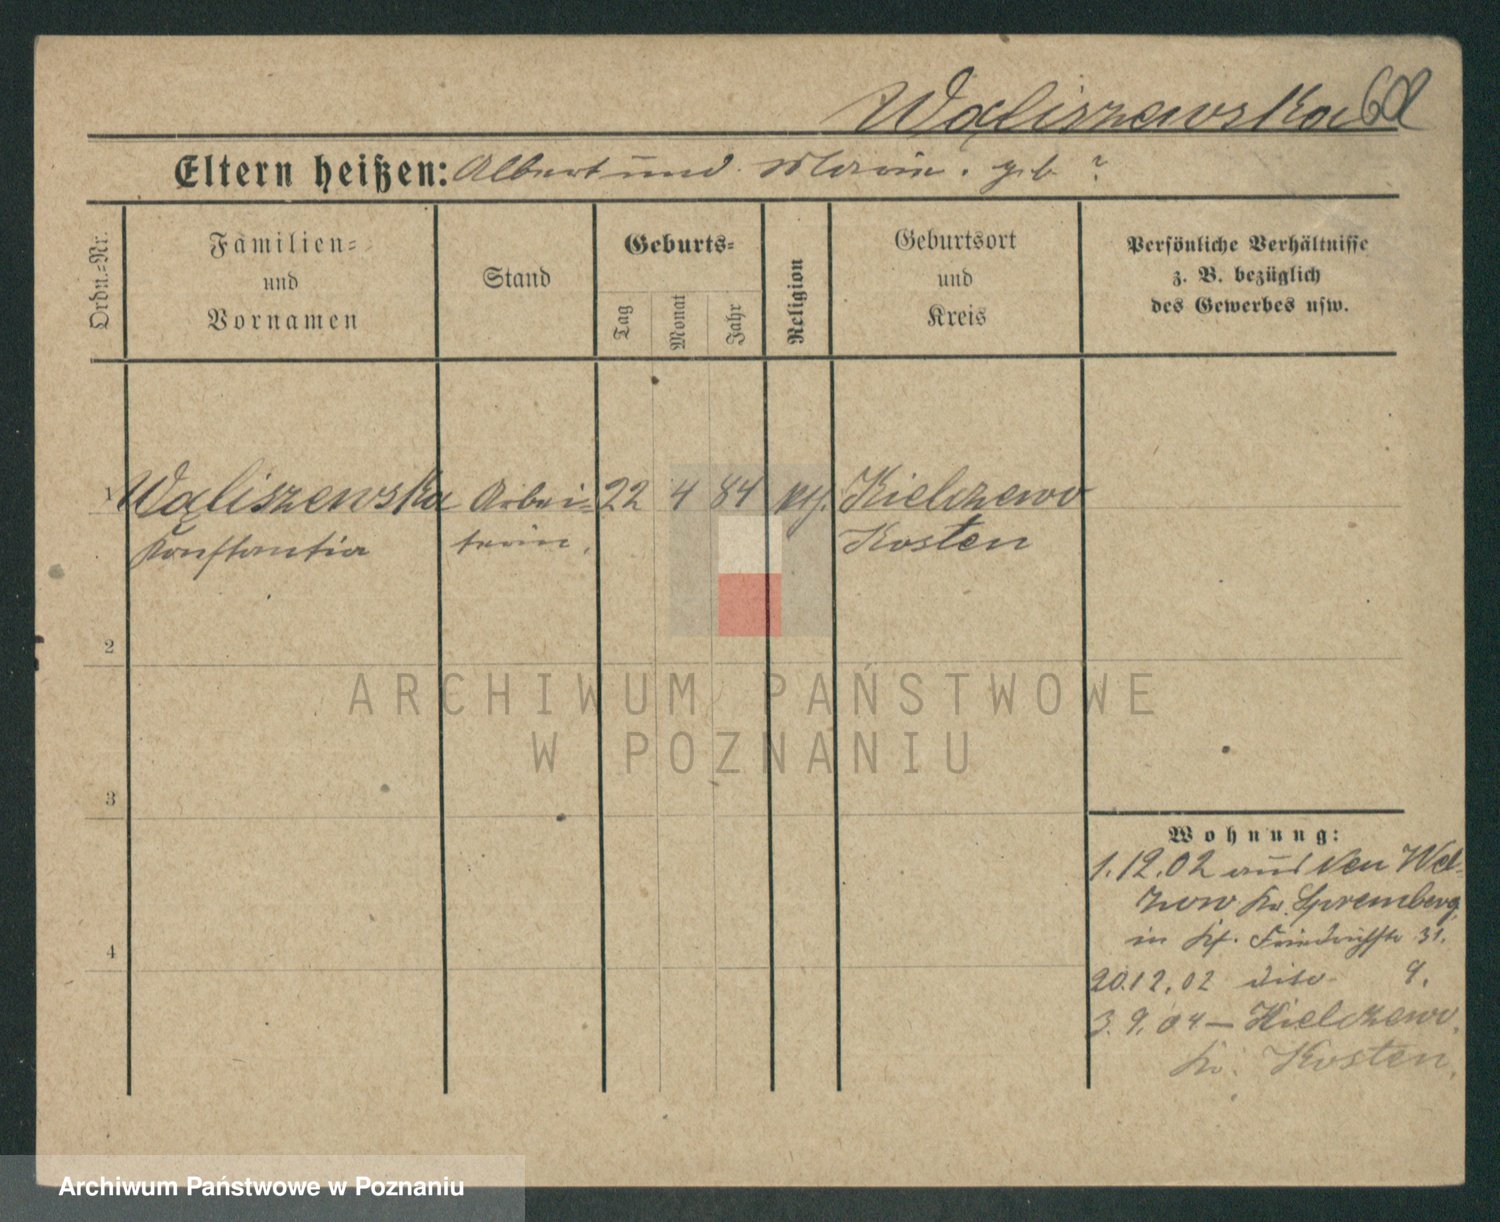 Waliszewska
Eltern heißen: Albert und Marie. geb ?
Ordn.-Nr.
Familien-
und
Vornamen
Stand
Geburts-
Tag
Monat
Jahr
Religion
Geburtsort
und
Kreis
Persönliche Verhältnisse
z. B. bezüglich
des Gewerbes usw.
1 Waliszewska Arbei- 22 4 84 kth. Kielczewo
Konstantia terin. Kosten
2
3
4
Wohnung:
1.12.02 aus Neu Wel-
zow Kr. Spremberg
in Friedrichstr 31.
20.12.02 dito 9.
3.9.04 – Kielczewo,
Kr. Kosten.
ARCHIWUM PAŃSTWOWE
W POZNANIU
Archiwum Państwowe w Poznaniu